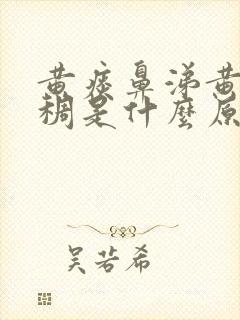 黄痰鼻涕黄
稠是什麼原
吴若希